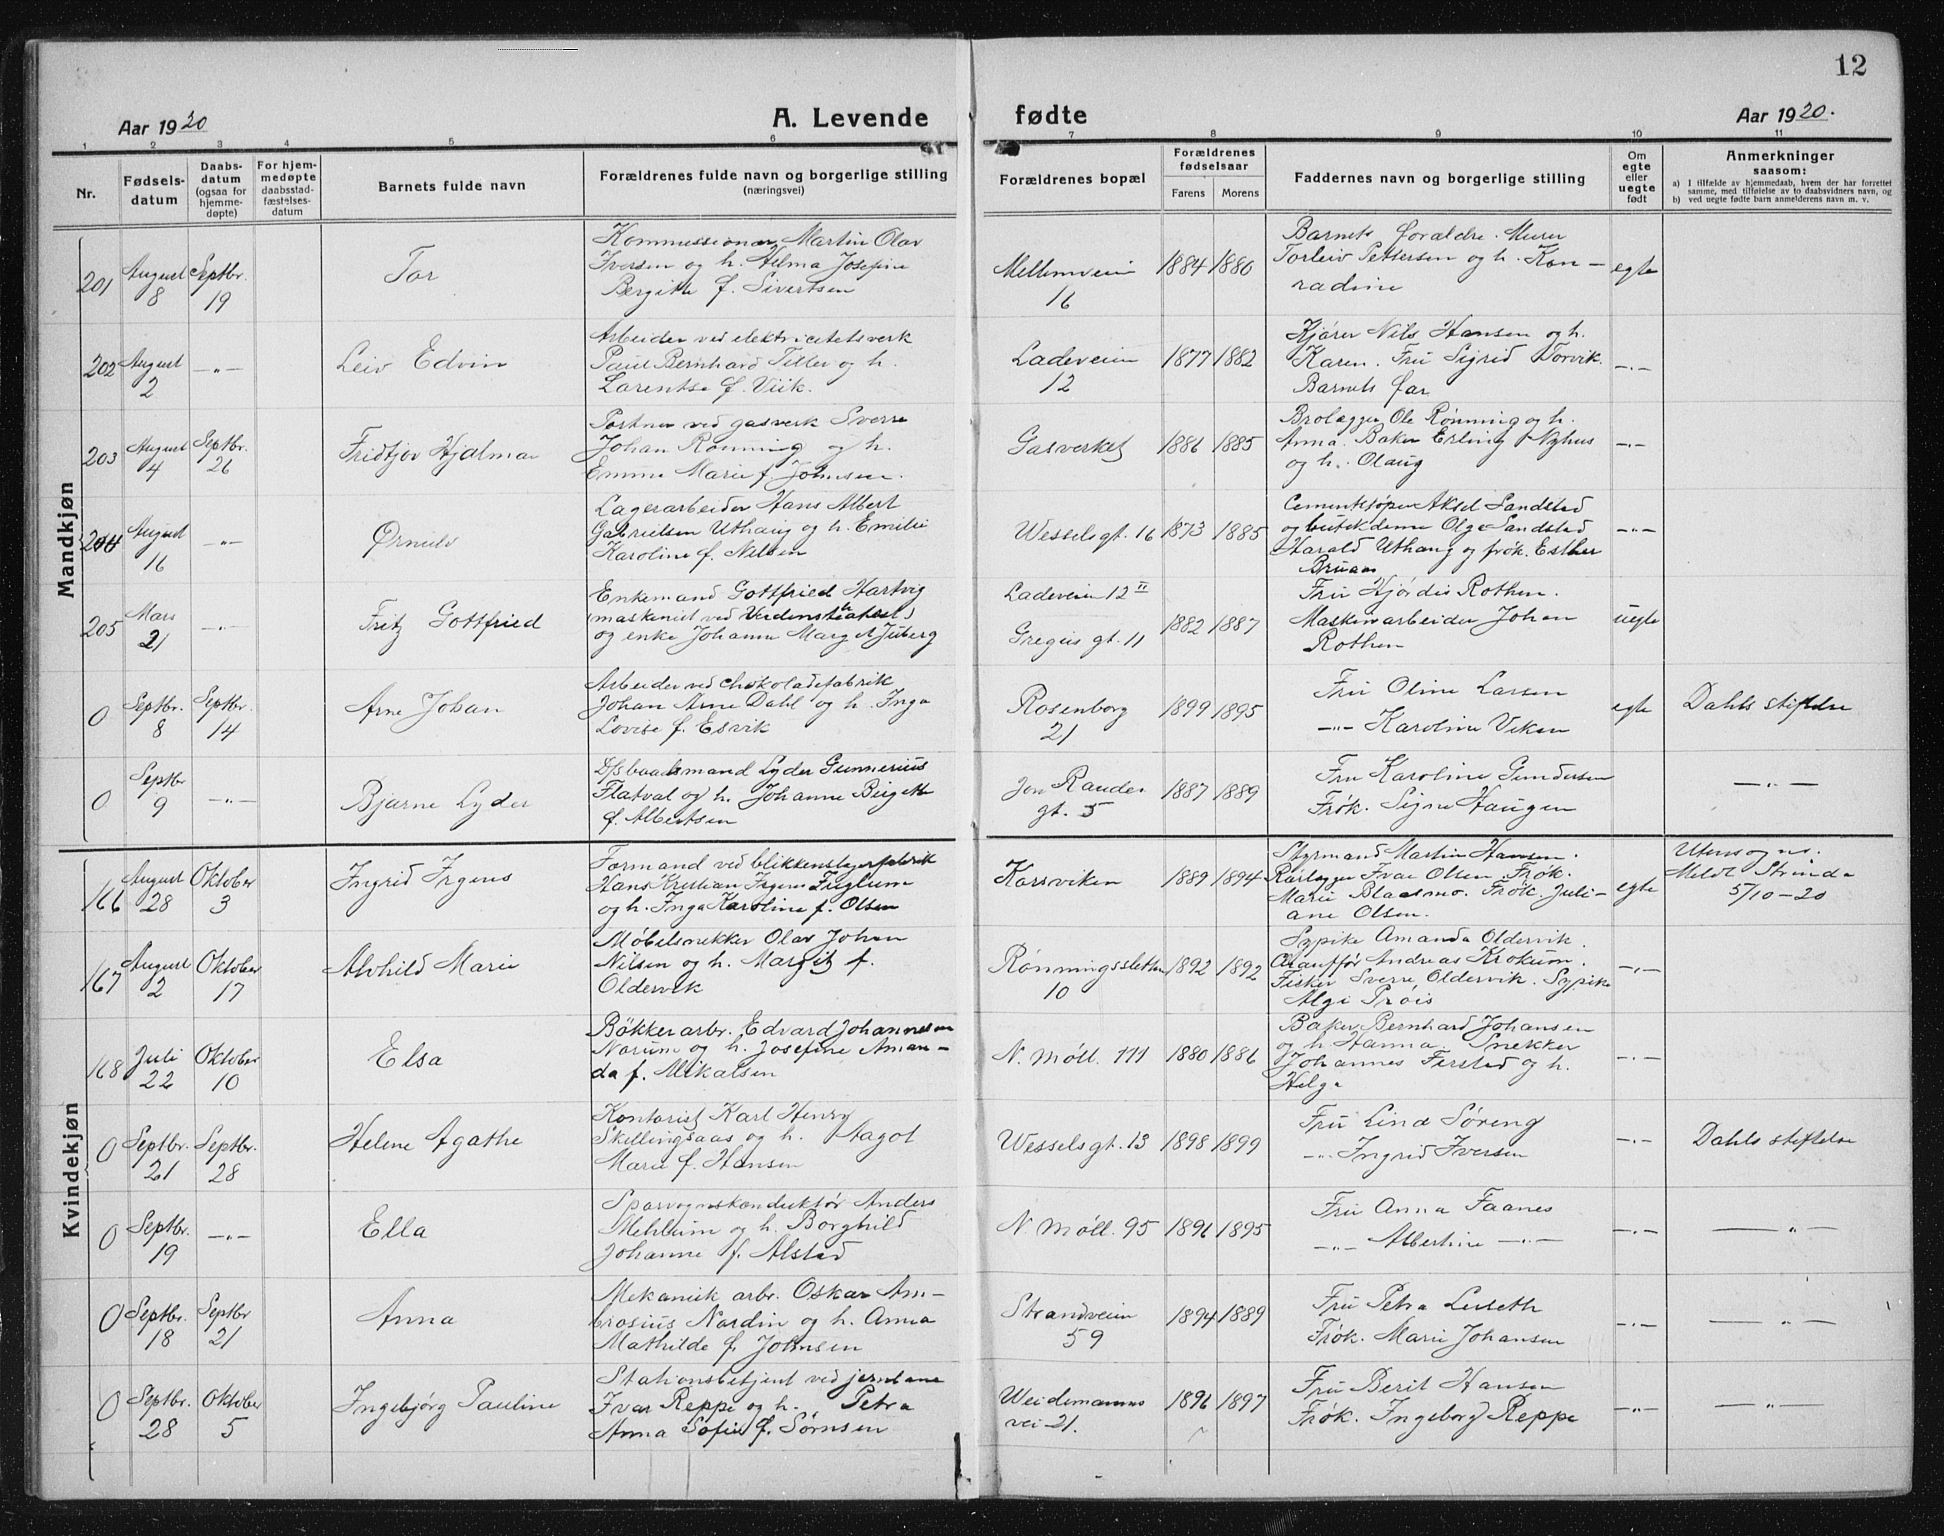 12
Aar 1920 A. Levende fødte Aar 1920.
1 2 3 4 5 6 7 8 9 10 11
Nr.
Fødsels-
datum
Daabs-
datum
(ogsaa for
hjemme-
døpte)
For hjem-
medøpte
daabsstad-
fæstelses-
datum
Barnets fulde navn
Forældrenes fulde navn og borgerlige stilling
(næringsvei)
Forældrenes bopæl
Forældrenes
fødselsaar
Farens Morens
Faddernes navn og borgerlige stilling
Om
egte
eller
uegte
født
Anmerkninger
saasom:
a) I tilfælde av hjemmedaab, hvem der har forrettet
samme, med tilføielse av to daabsvidners navn, og
b) ved uegte fødte barn anmelderens navn m. v.
Mandkjøn
201 August 8 Septbr. 19 Tor
Kommissionær Martin Olav
Iversen og h. Hilma Josefine
Bergitte f. Sivertsen
Mellemveien
16
1884 1880
Barnets forældre. Murer
Torleiv Pettersen og h. Kon-
radine
egte
202 August 2 -"- Leiv Edvin
Arbeider ved elektricitetsverk
Paul Bernhard Tiller og h.
Lorentse f. Viik.
Ladeveien
12
1877 1882
Kjører Nils Hansen og h.
Karen. Fru Sigrid Torvik.
Barnets far
-"-
203 August 4 Septbr. 26 Fridtjov Hjalmar
Portner ved gasverk Sverre
Johan Rønning og h.
Emma Marie f. Johnsen.
Gasverket
1886 1885
Brolægger Ole Rønning og h.
Anna. Baker Erling Nyhus
og h. Olaug
-"-
204 August 16 -"- Ørnulv
Lagerarbeider Hans Albert
Gabrielsen Uthaug og h. Emilie
Karoline f. Nilsen
Wesselsgt. 16
1873 1885
Cementstøper Aksel Sandstad
og butikdame Olga Sandstad
Harald Uthaug og frøk. Esther
Bruaas
-"-
205 Mars 21 -"- Fritz Gottfried
Enkemand Gottfried Hartvig
(maskinist ved Verdensteatret)
og enke Johanne Margit Juberg
Ladeveien 12 II
Gregus gt. 11
1882 1887
Fru Hjørdis Rothen.
Maskinarbeider Johan
Rothen
uegte
0 Septbr. 8 Septbr. 14 Arne Johan
Arbeider ved chokoladefabrik
Johan Arne Dahl og h. Inga
Lovise f. Esvik
Rosenborg
21
1899 1895
Fru Oline Larsen
-"- Karoline Viken
egte
Dahls stiftelse
0 Septbr 9 -"- Bjarne Lyder
D/sbaadsmand Lyder Gunnerius
Flatval og h. Johanne Birgitte
f. Albertsen
Jon Raudes
gt. 5
1887 1889
Fru Karoline Gundersen
Frøk. Signe Haugen
-"-
Kvindekjøn
166 August 28 Oktober 3 Ingrid Irgens
Formand ved blikkenslagerfabrik
Hans Kristian Irgens Fuglum
og h. Inga Karoline f. Olsen
Korsviken
1889 1894
Styrmand Martin Hansen.
Rørlægger Ivar Olsen. Frøk.
Marie Blaasmo. Frøk. Juli-
ane Olsen.
egte
Utensogns.
Meldt Strinda
5/10-20
167 August 2 Oktober 17 Alvhild Marie
Møbelsnekker Olav Johan
Nilsen og h. Margit f.
Oldervik
Rønningssletten
10
1892 1892
Sypike Amanda Oldervik.
Chauffør Andreas Krokum.
Fisker Sverre Oldervik. Sypike
-"-
168 Juli 22 Oktober 10 Elsa
Bøkkerarbr. Edvard Johannesen
Norum og h. Josefine Aman-
da f. Mikalsen
N. Møll. 111
1880 1886
Baker Bernhard Johansen
og h. Hanna. Snekker
Johannes Ferstad og h.
Helga
-"-
0 Septbr. 21 Septbr. 28 Helene Agathe
Kontorist Karl Henry
Skillingsaas og h. Aagot
Marie f. Hansen
Wesselsgt. 13
1898 1899
Fru Lina Søreng
-"- Ingrid Iversen
-"-
Dahls stiftelse
0 Septbr. 19 -"- Ella
Sporvognskonduktør Anders
Mehlum og h. Borghild
Johanne f. Alstad
N. Møll. 95
1896 1895
Fru Anna Faanes
-"- Albertine -"-
-"-
-"-
0 Septbr. 18 Septbr 21 Anna
Mekanisk arbr. Oskar Am-
brosius Nordin og h. Anna
Mathilde f. Johnsen
Strandveien
59
1894 1889
Fru Petra Luseth
Frøk. Marie Johansen
-"-
-"-
0 Septbr. 28 Oktober 5 Ingebjørg Pauline
Stationsbetjent ved jernbane
Ivar Reppe og h. Petra
Anna Sofie f. Sørnsen
Weidemanns
vei 21.
1896 1897
Fru Berit Hansen
Frøk. Ingeborg Reppe
-"-
-"-